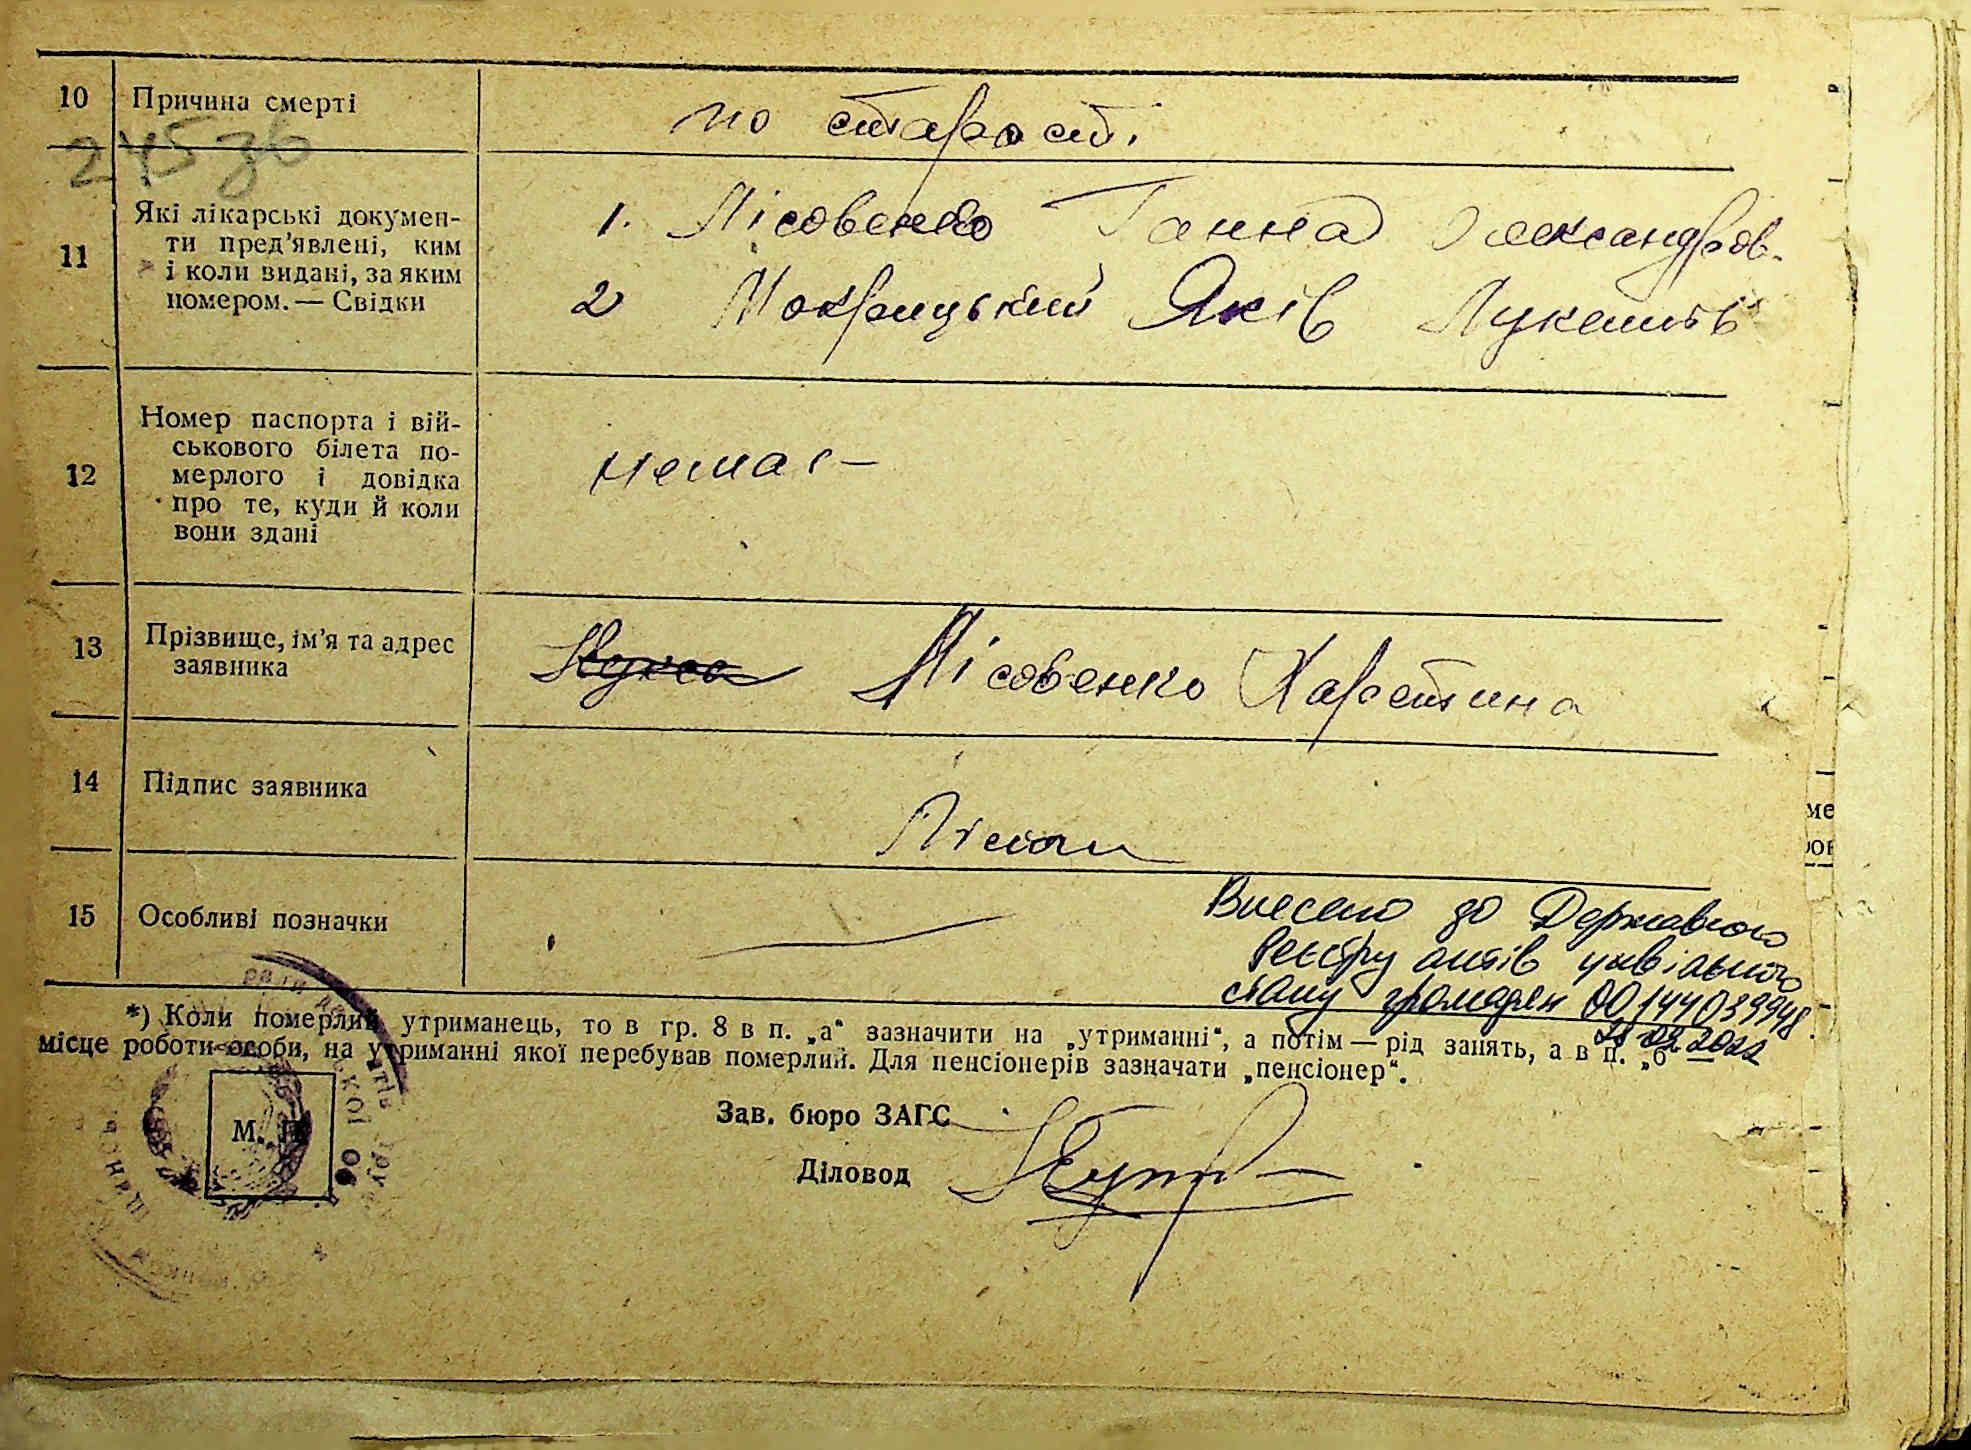 10 Причина смерті
по старості
24536
11 Які лікарські докумен-
ти пред'явлені, ким
і коли видані, за яким
номером. — Свідки
1. Лісовенко Ганна Олександров.
2 Мокрицький Яків Лукашів
12 Номер паспорта і вій-
ськового білета по-
мерлого і довідка
про те, куди й коли
вони здані
немає —
13 Прізвище, ім'я та адрес
заявника
Лісовенко Харетина
14 Підпис заявника
15 Особливі позначки
Внесено до Державного
реєстру актів цивільного
стану громадян 00144039948
2022
*) Коли померлий утриманець, то в гр. 8 в п. „а“ зазначити на „утриманні“, а потім — рід занять, а в п. „б“
місце роботи особи, на утриманні якої перебував померлий. Для пенсіонерів зазначати „пенсіонер“.
М. П.
Зав. бюро ЗАГС
Діловод